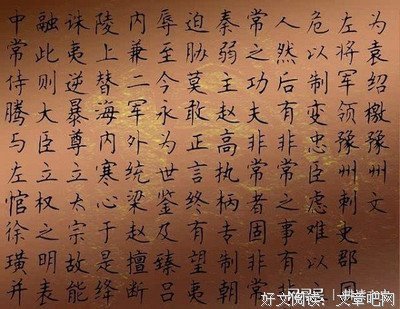 为袁绍檄豫州文
左将军领豫州刺史郡国
危以制变忠臣虑难以
人然后有非常之事有非
常之功夫非常者固非常
秦弱主赵高执柄专制朝
迫胁莫敢正言终有望夷
辱至今永为世鉴及臻吕
内兼二军外统梁赵擅断
陵上替海内寒心于是绛
诛夷逆暴尊立太宗故能
融此则大臣立权之明表
中常侍腾与左悺徐璜并
好文阅读：文章吧网